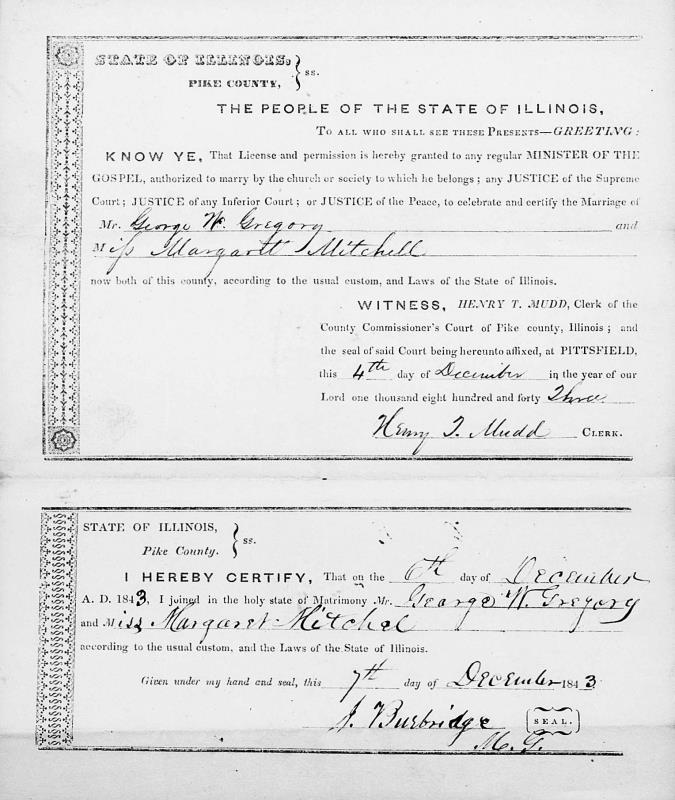 STATE OF ILLINOIS,
PIKE COUNTY, } ss.
THE PEOPLE OF THE STATE OF ILLINOIS,
TO ALL WHO SHALL SEE THESE PRESENTS—GREETING:
KNOW YE, That License and permission is hereby granted to any regular MINISTER OF THE
GOSPEL, authorized to marry by the church or society to which he belongs; any JUSTICE of the Supreme
Court; JUSTICE of any Inferior Court; or JUSTICE of the Peace, to celebrate and certify the Marriage of
Mr. George W. Gregory and
Miss Margarett Mitchell
now both of this county, according to the usual custom, and Laws of the State of Illinois.
WITNESS, HENRY T. MUDD, Clerk of the
County Commissioner's Court of Pike county, Illinois; and
the seal of said Court being hereunto affixed, at PITTSFIELD,
this 4th day of December in the year of our
Lord one thousand eight hundred and forty Three
Henry T. Mudd CLERK.
STATE OF ILLINOIS,
Pike County. } ss.
I HEREBY CERTIFY, That on the 6th day of December
A. D. 1843, I joined in the holy state of Matrimony Mr. George W. Gregory
and Miss Margaret Mitchel
according to the usual custom, and the Laws of the State of Illinois.
Given under my hand and seal, this 7th day of December 1843
J. Burbridge SEAL.
M. G.